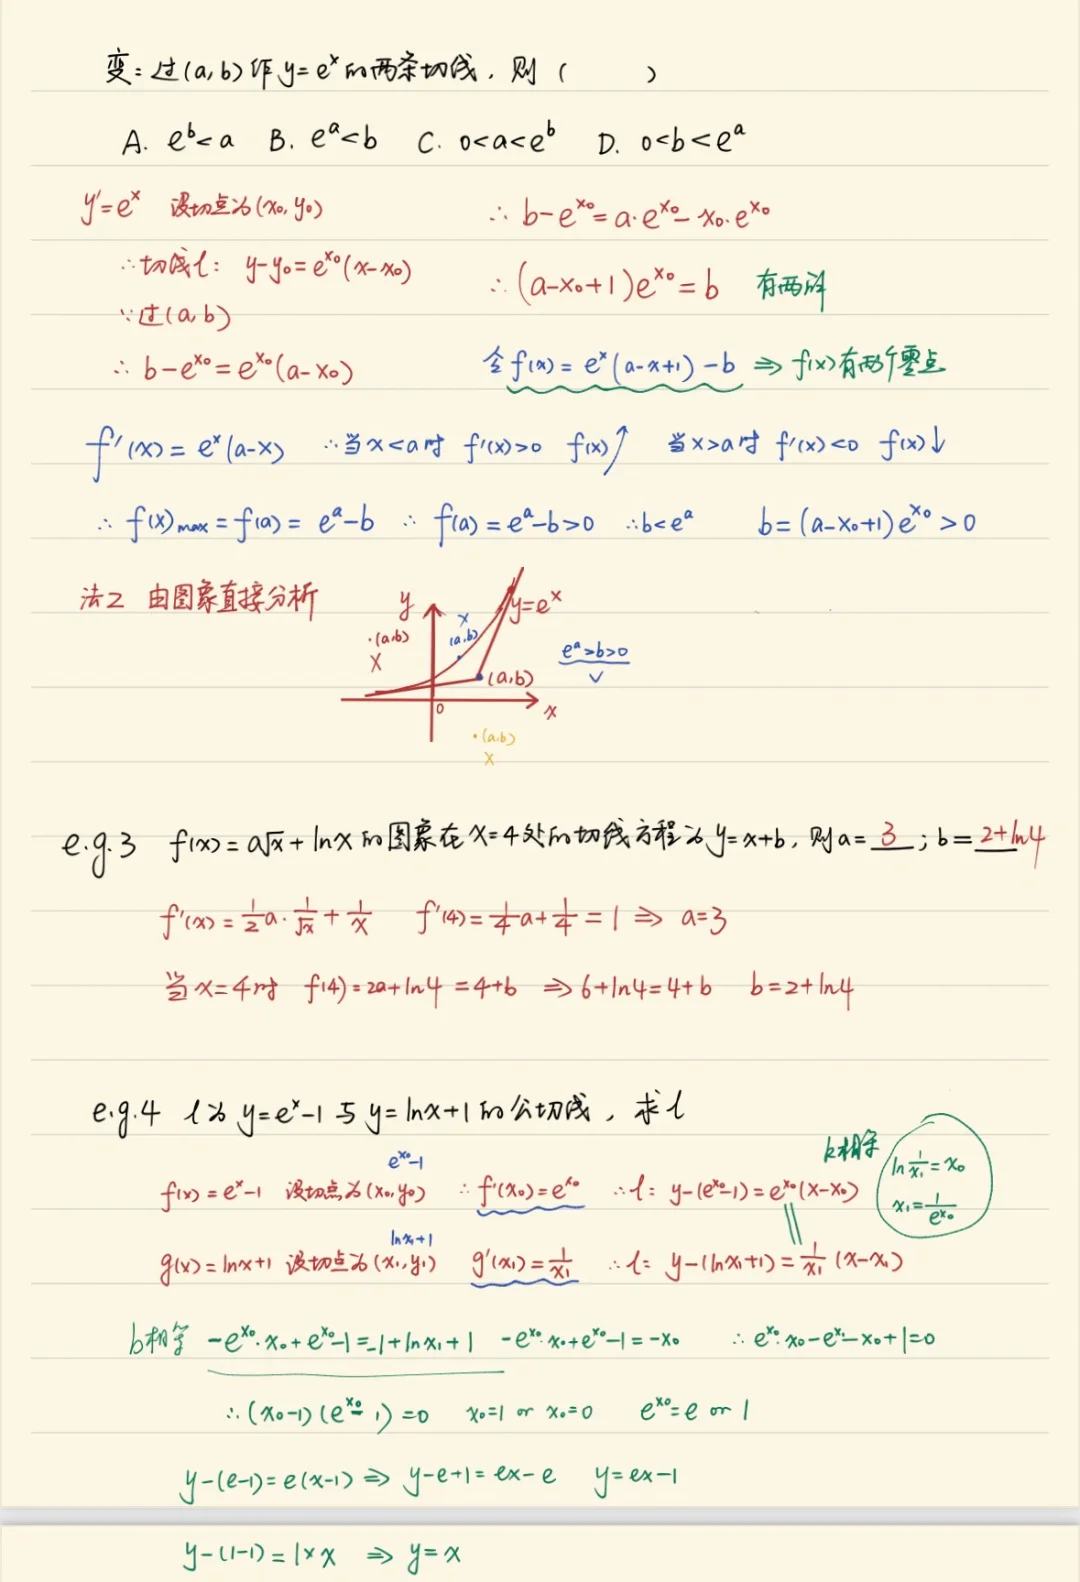 变：过(a,b)作y=eˣ的两条切线，则（　　）
A. eᵇ<a　B. eᵃ<b　C. 0<a<eᵇ　D. 0<b<eᵃ
y'=eˣ　设切点为(x₀,y₀)
∴切线l：y-y₀=e^{x₀}(x-x₀)
∵过(a,b)
∴ b-e^{x₀}=e^{x₀}(a-x₀)
∴ b-e^{x₀}=a·e^{x₀}-x₀·e^{x₀}
∴ (a-x₀+1)e^{x₀}=b　有两解
令f(x)=eˣ(a-x+1)-b ⇒ f(x)有两个零点
f'(x)=eˣ(a-x)　∴当x<a时 f'(x)>0 f(x)↑　当x>a时 f'(x)<0 f(x)↓
∴ f(x)max=f(a)=eᵃ-b ∴ f(a)=eᵃ-b>0 ∴b<eᵃ　b=(a-x₀+1)e^{x₀}>0
法2 由图象直接分析
y
y=eˣ
·(a,b)
X
x
(a,b)
eᵃ>b>0
√
(a,b)
0
x
·(a,b)
X
e.g.3　f(x)=a√x+lnx的图象在x=4处的切线方程为y=x+b，则a=3；b=2+ln4
f'(x)=1/2 a·1/√x+1/x　f'(4)=1/4 a+1/4=1 ⇒ a=3
当x=4时 f(4)=2a+ln4=4+b ⇒ 6+ln4=4+b　b=2+ln4
e.g.4　l为y=eˣ-1与y=lnx+1的公切线，求l
k相等
ln 1/x₁=x₀
x₁=1/e^{x₀}
e^{x₀}-1
f(x)=eˣ-1 设切点为(x₀,y₀)　∴f'(x₀)=e^{x₀}　∴l：y-(e^{x₀}-1)=e^{x₀}(x-x₀)
lnx₁+1
g(x)=lnx+1 设切点为(x₁,y₁)　g'(x₁)=1/x₁　∴l：y-(lnx₁+1)=1/x₁(x-x₁)
b相等　-e^{x₀}·x₀+e^{x₀}-1=-1+lnx₁+1　-e^{x₀}·x₀+e^{x₀}-1=-x₀　∴e^{x₀}·x₀-e^{x₀}-x₀+1=0
∴(x₀-1)(e^{x₀}-1)=0　x₀=1 or x₀=0　e^{x₀}=e or 1
y-(e-1)=e(x-1) ⇒ y-e+1=ex-e　y=ex-1
y-(1-1)=1×x ⇒ y=x